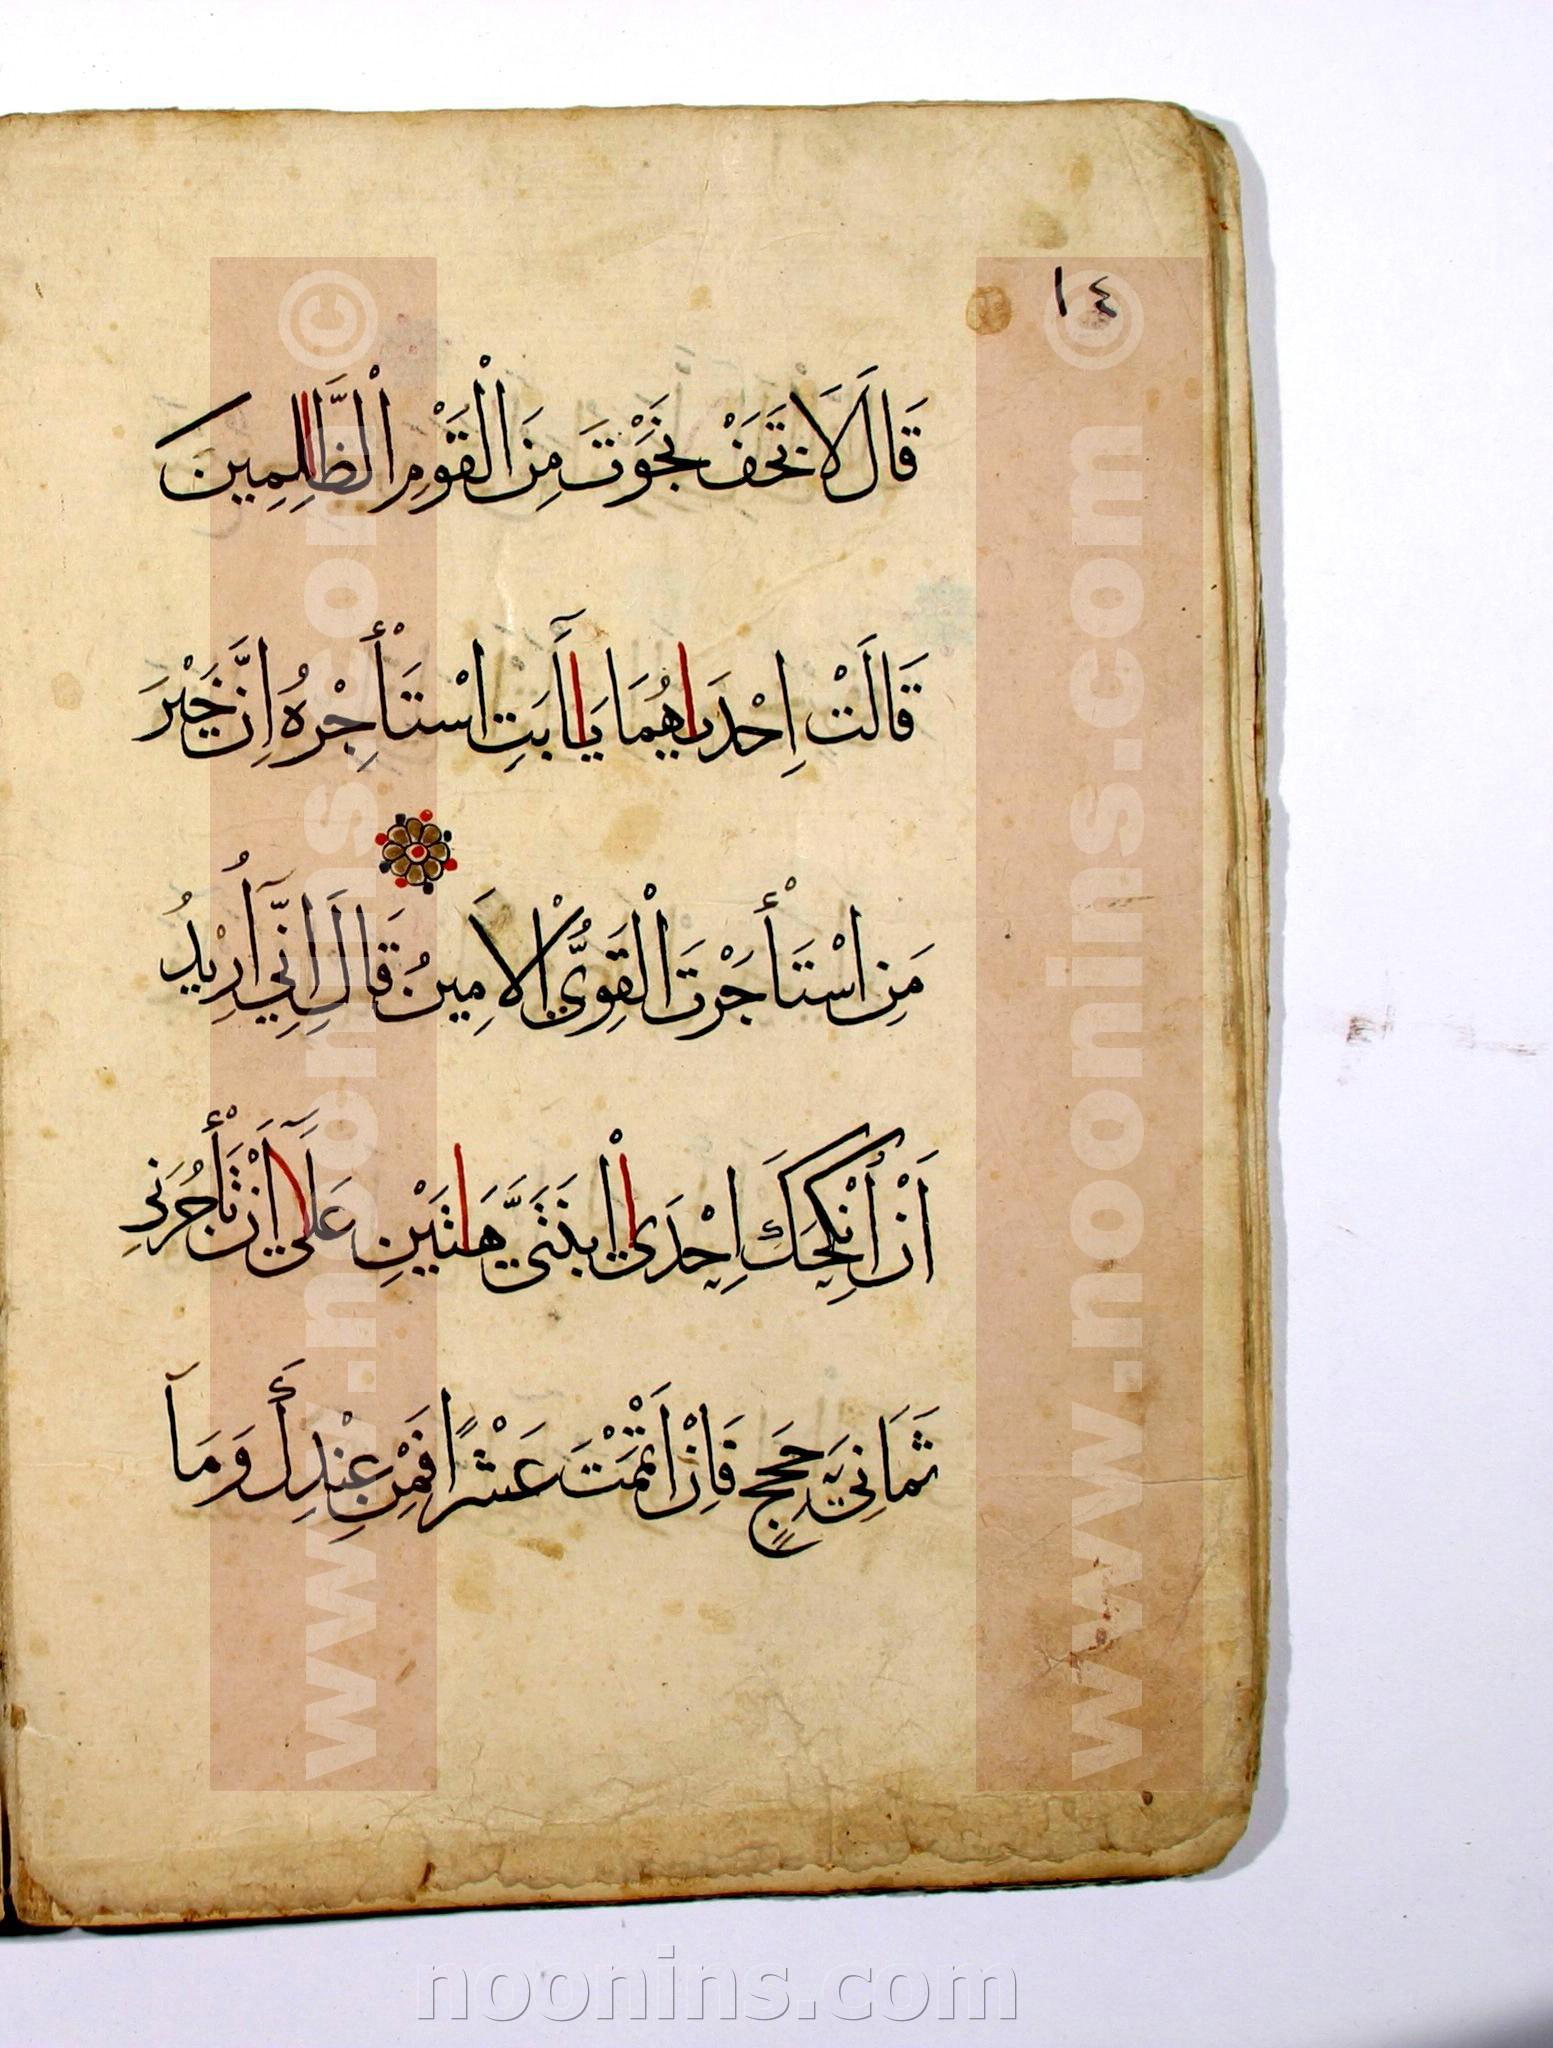 ١٤
قَالَ لَا تَخَفْ نَجَوْتَ مِنَ الْقَوْمِ الْظَّالِمِينَ
قَالَتْ اِحْدَىاهُمَا يَاأَبَتِ اسْتَأْجِرْهُ اِنَّ خَيْرَ
مَنِ اسْتَأْجَرْتَ الْقَوِيُّ الْاَمِينُ قَالَ اِنِّي اُرِيْدُ
اَنْ اُنْكِحَكَ اِحْدَى ابْنَتَيَّ هَاتَيْنِ عَلَىٓ اَنْ تَأْجُرَنِي
ثَمَانِيَ حِجَجٍ فَاِنْ اَتْمَمْتَ عَشْرًا فَمِنْ عِنْدِكَ وَمَآ
www.noonins.com ©
www.noonins.com ©
noonins.com